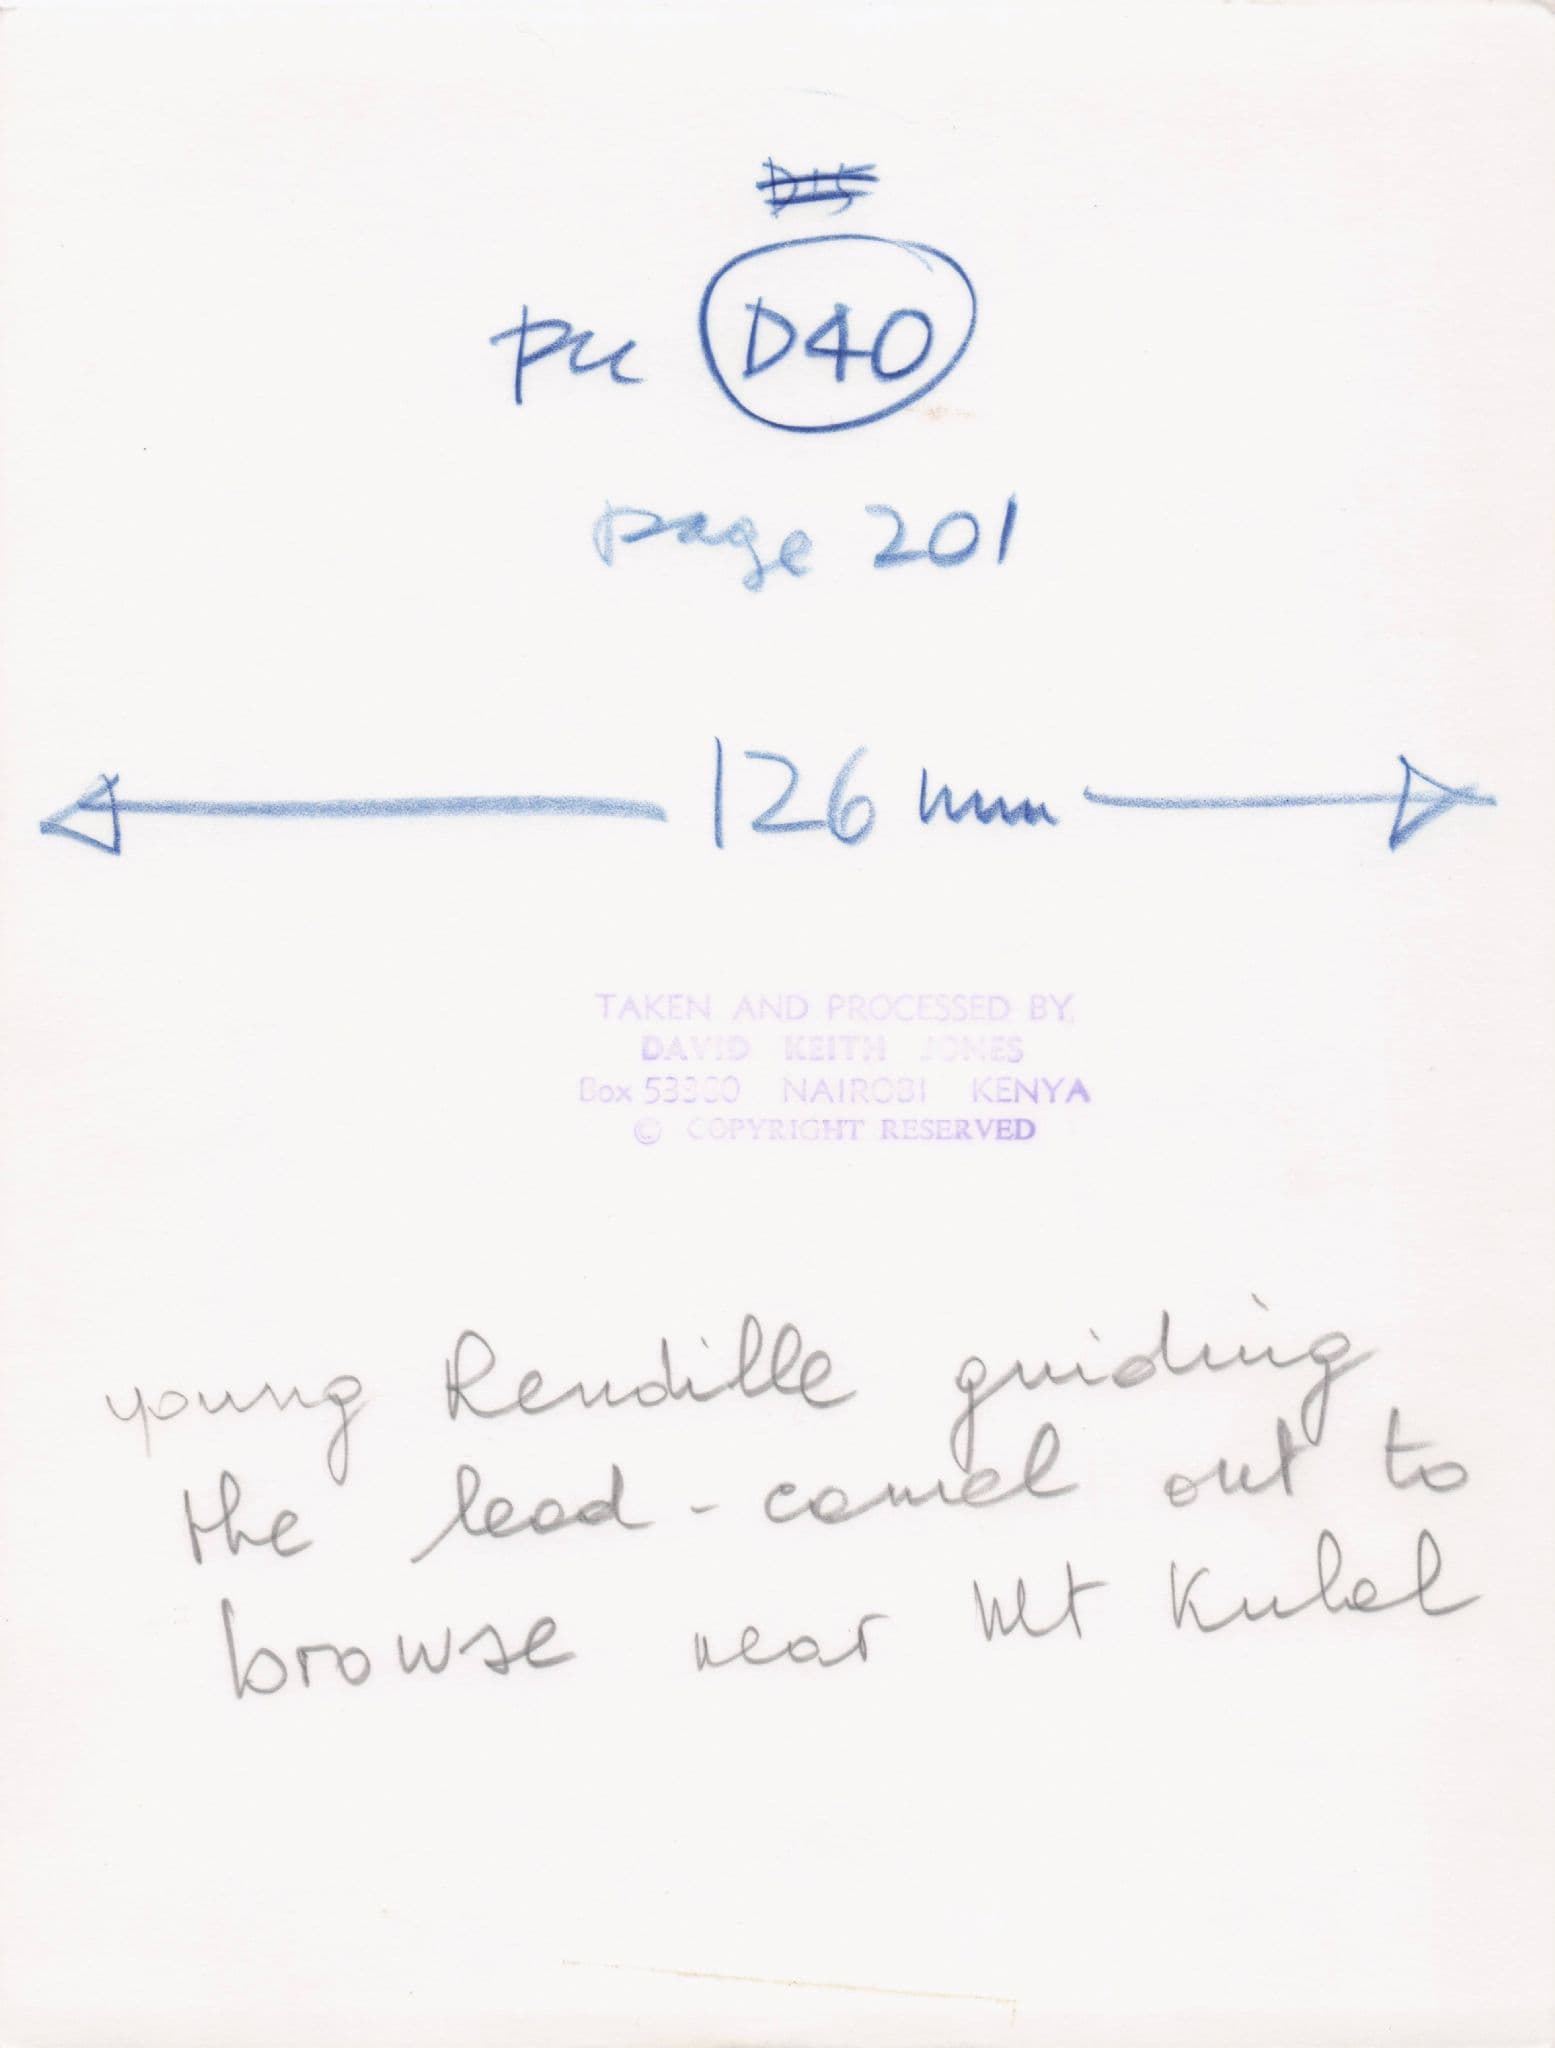 D15
pic D40
page 201
126 mm
TAKEN AND PROCESSED BY,
DAVID KEITH JONES
Box 53380 NAIROBI KENYA
© COPYRIGHT RESERVED
young Rendille guiding
the lead-camel out to
browse near Mt Kulal